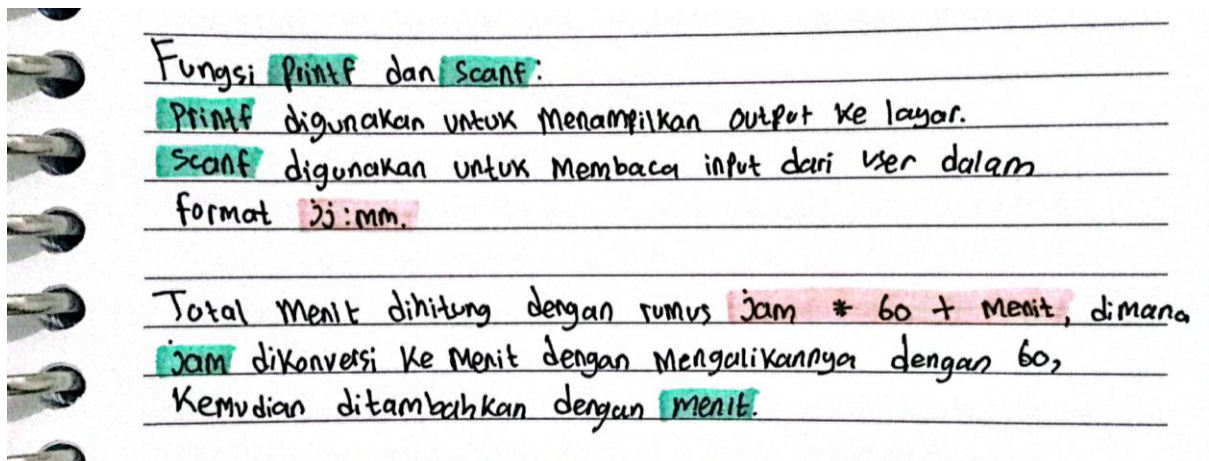 Fungsi Printf dan Scanf:
Printf digunakan untuk Menampilkan output ke layar.
Scanf digunakan untuk Membaca input dari user dalam
format jj:mm.
Total Menit dihitung dengan rumus jam * 60 + Menit, dimana
jam dikonversi ke Menit dengan Mengalikannya dengan 60,
Kemudian ditambahkan dengan menit.